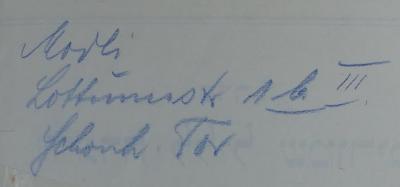 Modli
Lottumstr 1b III.
Schönh Tor